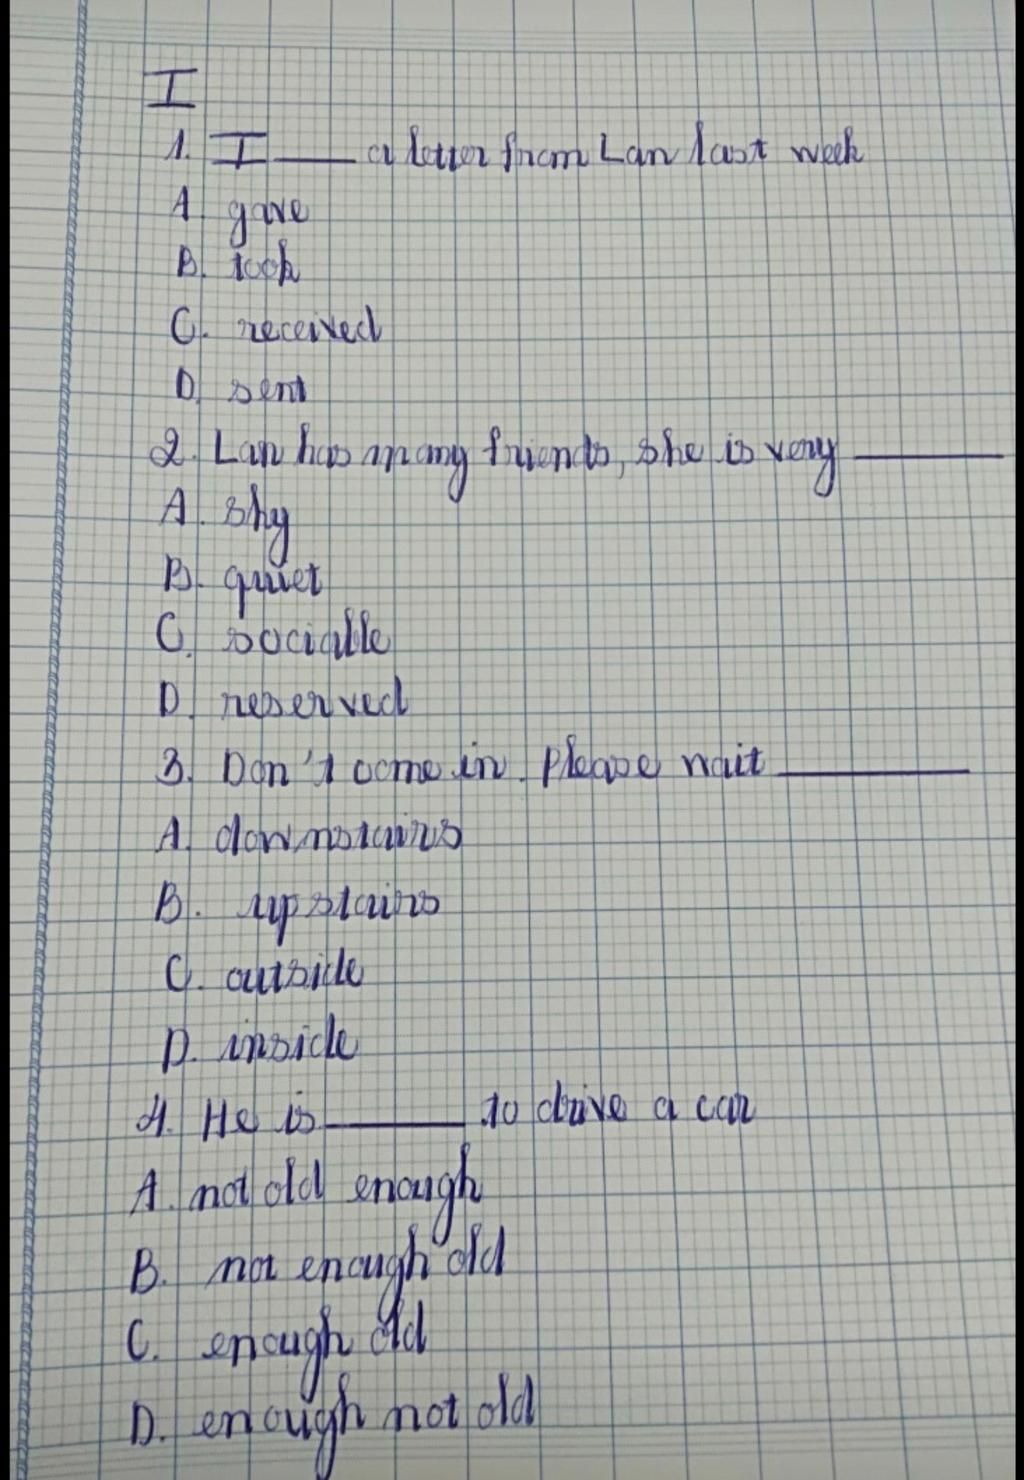 I
1. I ____ a letter from Lan last week
A. gave
B. took
C. received
D. sent
2. Lan has many friends, she is very ____
A. shy
B. quiet
C. sociable
D. reserved
3. Don't come in. Please wait ____
A. downstairs
B. upstairs
C. outside
D. inside
4. He is ____ to drive a car
A. not old enough
B. not enough old
C. enough old
D. enough not old